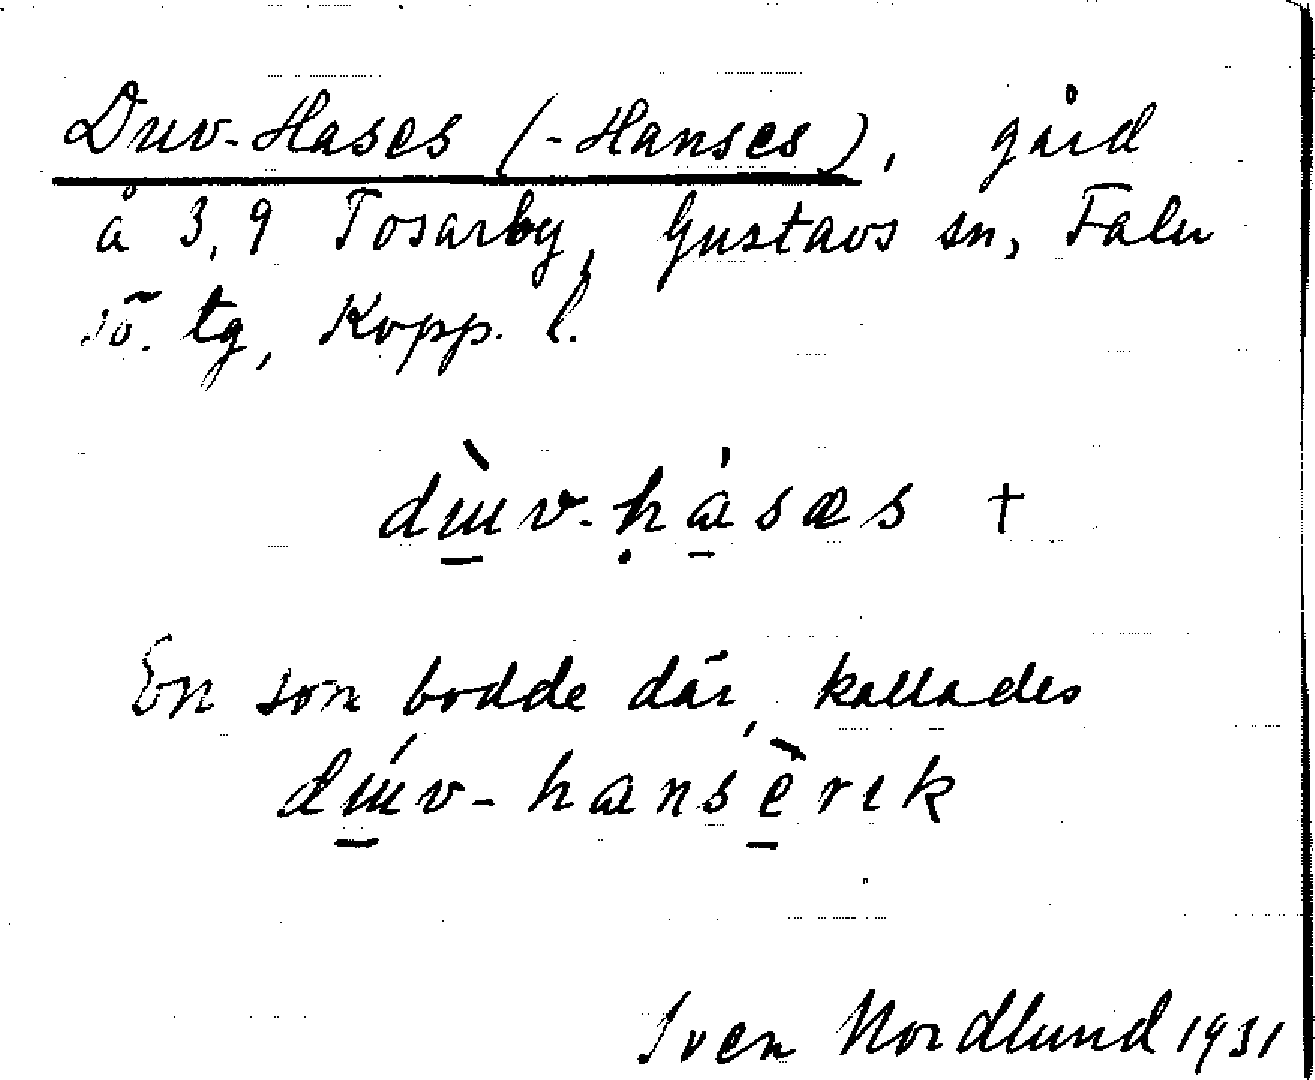 Duv-Hases (-Hanses), gård
å 3,9 Tosarby, Gustavs sn, Falu
sö. tg, Kopp. l.
dɯ̀v-hásæs +
En som bodde där, kallades
dɯ́v-hansèrɩk
Sven Nordlund 1931